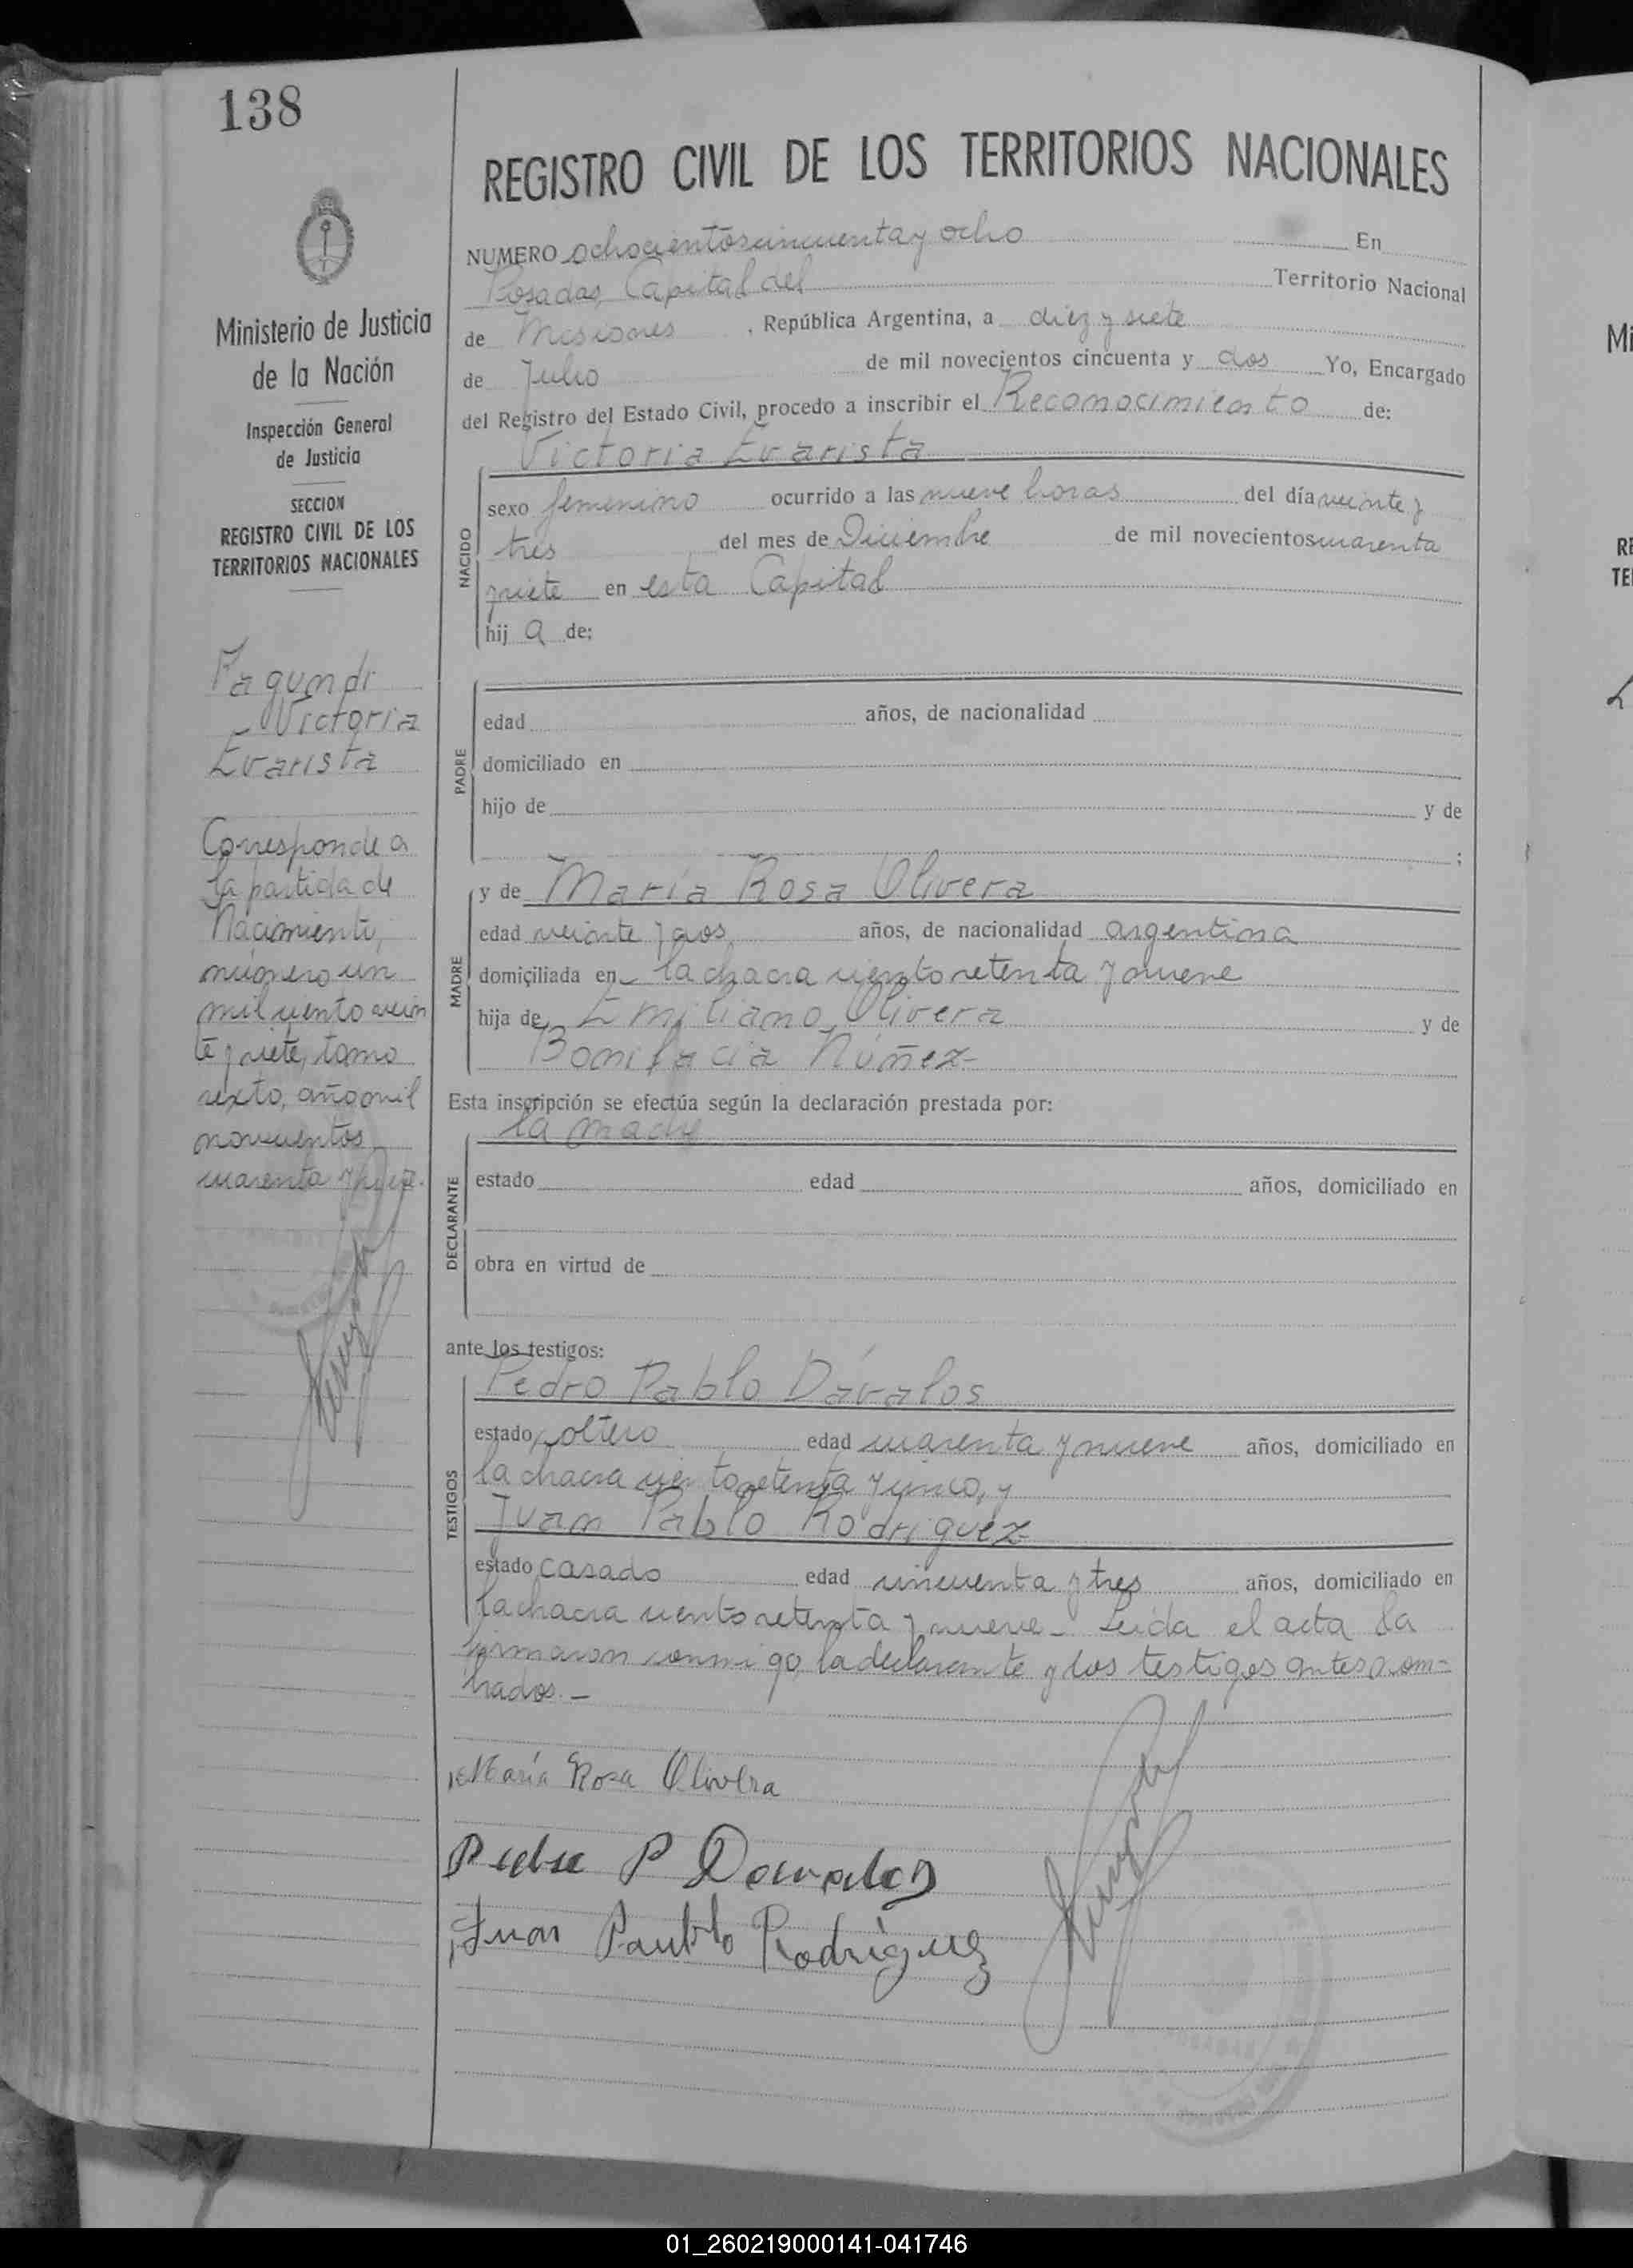 138
REGISTRO CIVIL DE LOS TERRITORIOS NACIONALES
NUMERO ochocientos cincuenta y ocho En
Posadas, Capital del Territorio Nacional
de Misiones, República Argentina, a diez y siete
de Julio de mil novecientos cincuenta y dos Yo, Encargado
del Registro del Estado Civil, procedo a inscribir el Reconocimiento de:
Victoria Evarista
NACIDO
sexo femenino ocurrido a las nueve horas del día veinte y
tres del mes de Diciembre de mil novecientos cuarenta
y siete en esta Capital
hij a de:
PADRE
edad años, de nacionalidad
domiciliado en
hijo de y de
;
MADRE
y de María Rosa Olivera
edad veinte y dos años, de nacionalidad argentina
domiciliada en la chacra ciento setenta y nueve
hija de Emiliano Olivera y de
Bonifacia Núñez-
Esta inscripción se efectúa según la declaración prestada por:
la madre
DECLARANTE
estado edad años, domiciliado en
obra en virtud de
ante los testigos:
TESTIGOS
Pedro Pablo Dávalos
estado soltero edad cuarenta y nueve años, domiciliado en
la chacra ciento setenta y cinco, y
Juan Pablo Rodríguez
estado casado edad cincuenta y tres años, domiciliado en
la chacra ciento setenta y nueve_ Leida el acta la
firmaron conmigo, la declarante y los testigos antes nom=
brados.-
María Rosa Olivera
Pedro P Davalos
Juan Paublo Rodriguez
Ministerio de Justicia
de la Nación
Inspección General
de Justicia
SECCION
REGISTRO CIVIL DE LOS
TERRITORIOS NACIONALES
Victoria
Evarista
Corresponde a
la partida de
Nacimiento,
número un
mil ciento vein
te y siete, tomo
sexto, año mil
novecientos
cuarenta y
Mi
RE
TE
01_260219000141-041746